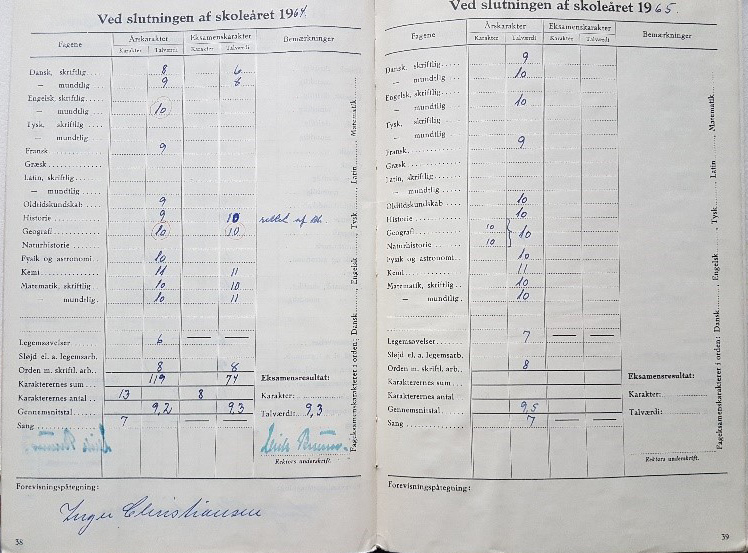 Ved slutningen af skoleåret 1964.
Fagene Årskarakter Eksamenskarakter Bemærkninger
Karakter Talværdi Karakter Talværdi
Dansk, skriftlig..... 8 6
— mundtlig..... 9 8
Engelsk, skriftlig.....
— mundtlig..... 10
Tysk, skriftlig.....
— mundtlig.....
Fransk..... 9
Græsk.....
Latin, skriftlig.....
— mundtlig.....
Oldtidskundskab..... 9
Historie..... 9 10 rettet af
Geografi..... 10 10
Naturhistorie.....
Fysik og astronomi.. 10
Kemi..... 11 11
Matematik, skriftlig.. 10 10
— mundtlig. 10 11
Legemsøvelser..... 6 — —
Sløjd el. a. legemsarb.
Orden m. skriftl. arb.. 8 8
Karakterernes sum... 119 74 Eksamensresultat:
Karakterernes antal.. 13 8 Karakter:
Gennemsnitstal..... 9,2 9,3 Talværdi: 9,3
Sang..... 7
Rektors underskrift.
Fageksamenskarakterer i orden: Dansk....., Engelsk....., Tysk....., Latin....., Matematik.....
Forevisningspåtegning:
Inger Christiansen
38
Ved slutningen af skoleåret 1965.
Fagene Årskarakter Eksamenskarakter Bemærkninger
Karakter Talværdi Karakter Talværdi
Dansk, skriftlig..... 9
— mundtlig..... 10
Engelsk, skriftlig.....
— mundtlig..... 10
Tysk, skriftlig.....
— mundtlig.....
Fransk..... 9
Græsk.....
Latin, skriftlig.....
— mundtlig.....
Oldtidskundskab..... 10
Historie..... 10
Geografi..... 10 } 10
Naturhistorie..... 10
Fysik og astronomi.. 10
Kemi..... 11
Matematik, skriftlig.. 10
— mundtlig. 10
Legemsøvelser..... 7 — —
Sløjd el. a. legemsarb.
Orden m. skriftl. arb.. 8
Karakterernes sum... Eksamensresultat:
Karakterernes antal.. Karakter:
Gennemsnitstal..... 9,5 Talværdi:
Sang..... 7 — —
Rektors underskrift.
Fageksamenskarakterer i orden: Dansk....., Engelsk....., Tysk....., Latin....., Matematik.....
Forevisningspåtegning:
39